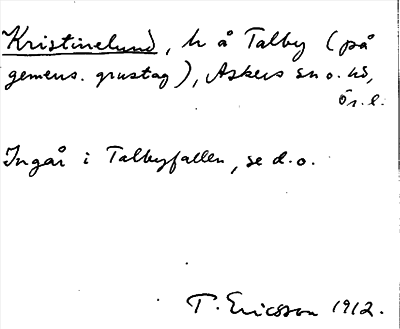 Kristinelund, h å Talby (på
gemens. grustag), Askers sn o. hd,
Ör. l.
Ingår i Talbyfallen, se d.o.
T. Ericsson 1912.